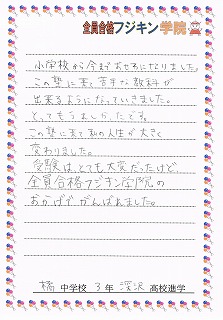 全員合格フジキン学院
小学校から今までお世話になりました。
この塾に来て苦手な教科が
出来るようになっていきました。
とってもうれしかったです。
この塾に来て私の人生が大きく
変わりました。
受験は、とても大変だったけど、
全員合格フジキン学院の
おかげでがんばれました。
橘 中学校 3年 深沢 高校進学